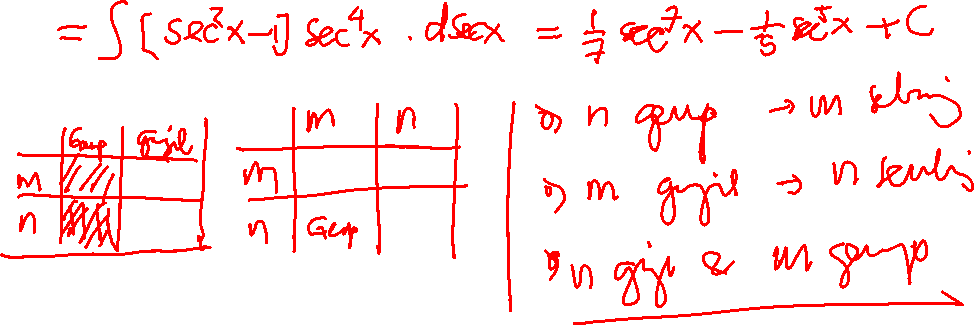 = ∫ [sec²x-1] sec⁴x . dsecx = 1/7 sec⁷x - 1/5 sec⁵x + C
Genap ganjil
m
n
m n
m
n Genap
n genap → m
m ganjil → n
n ganjil & m genap